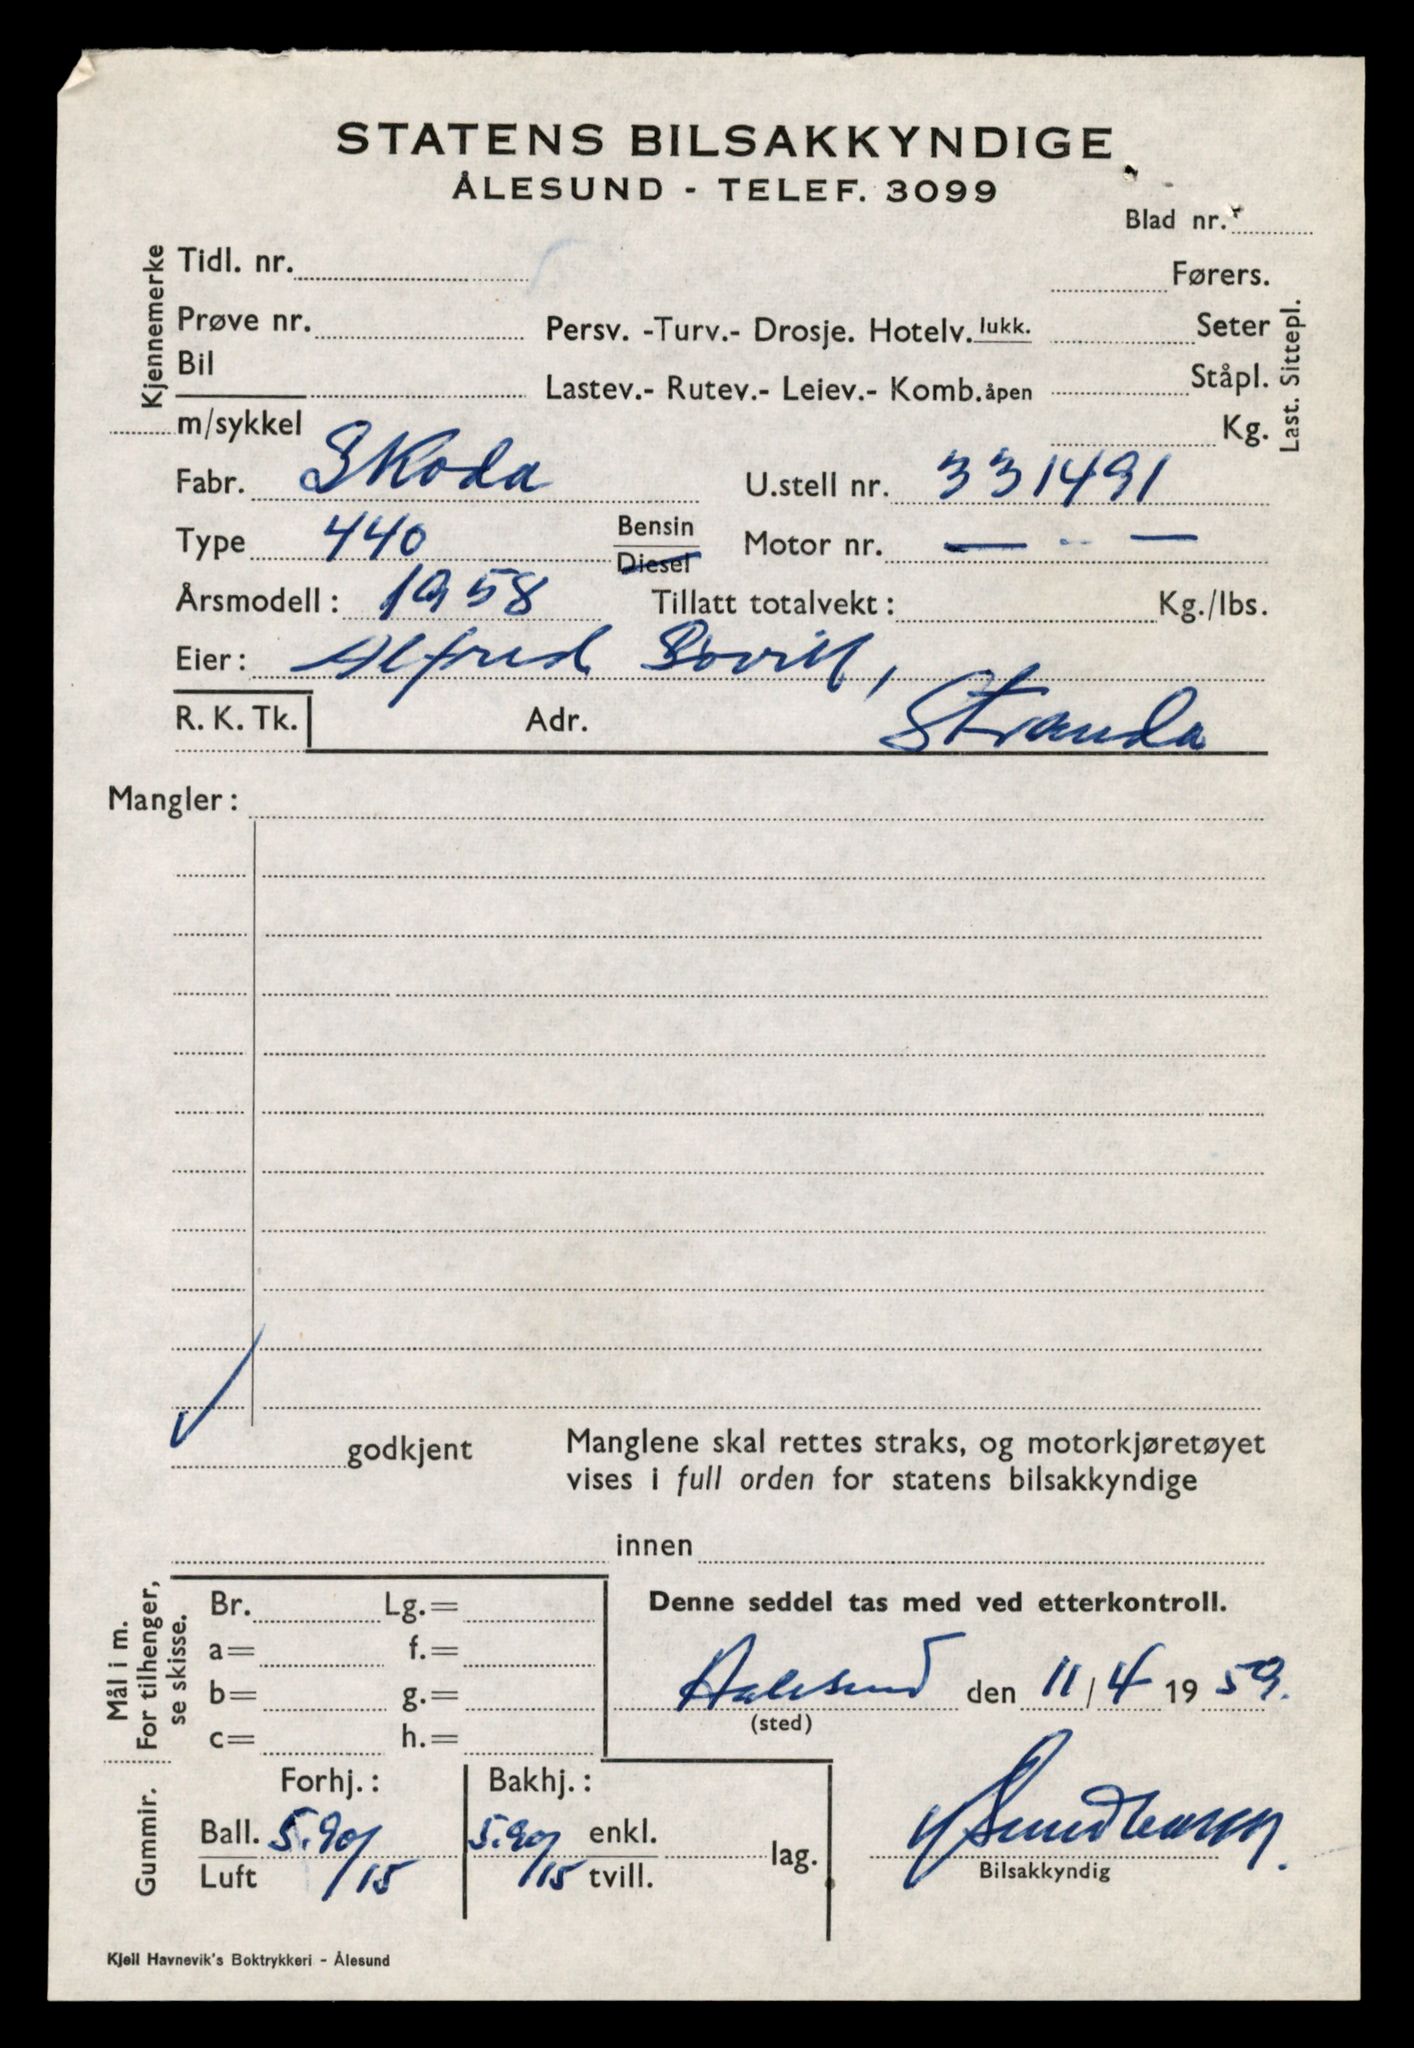 STATENS BILSAKKYNDIGE
ÅLESUND - TELEF. 3099
Blad nr.
Kjennemerke
Tidl. nr.
Førers.
Prøve nr.
Persv. -Turv.- Drosje. Hotelv. lukk.
Seter
Bil
Lastev.- Rutev.- Leiev.- Komb. åpen
Ståpl.
m/sykkel
Kg.
Last. Sittepl.
Fabr. Skoda
U.stell nr. 331491
Type 440
Bensin
Diesel
Motor nr. — - —
Årsmodell: 1958
Tillatt totalvekt: Kg./lbs.
Eier: Alfred
R. K. Tk.
Adr. Stranda
Mangler:
godkjent
Manglene skal rettes straks, og motorkjøretøyet
vises i full orden for statens bilsakkyndige
innen
Mål i m.
For tilhenger,
se skisse.
Br. Lg.=
a= f.=
b= g.=
c= h.=
Denne seddel tas med ved etterkontroll.
Aalesund den 11/4 1959.
(sted)
Gummir.
Forhj.:
Bakhj.:
Ball. 5.90/15
Luft
5.90/15 enkl.
tvill.
lag.
Bilsakkyndig
Kjell Havnevik's Boktrykkeri - Ålesund